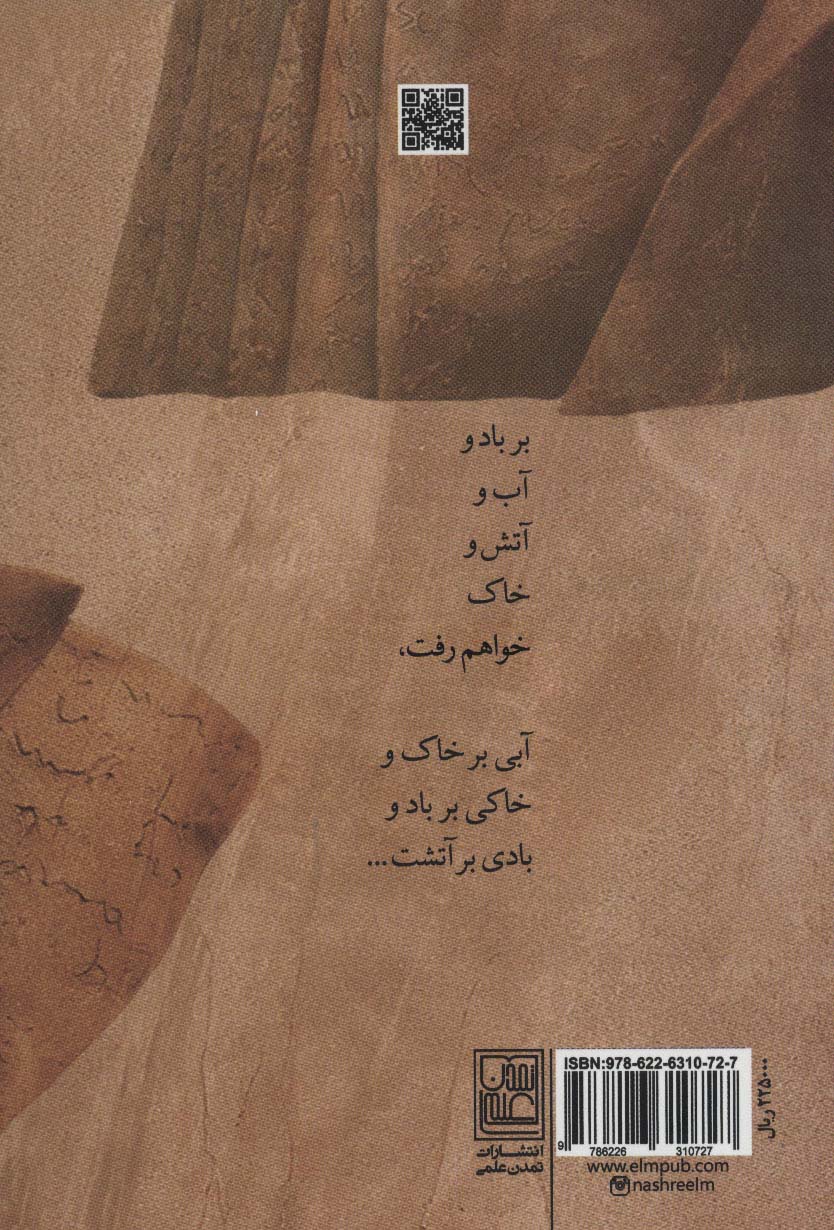 بر باد و
آب و
آتش و
خاک
خواهم رفت،
آبی بر خاک و
خاکی بر باد و
بادی بر آتشت...
تمدن
علمی
انتشارات
تمدن علمی
ISBN:978-622-6310-72-7
9 786226 310727
www.elmpub.com
nashreelm
۲۲۵۰۰۰ ریال